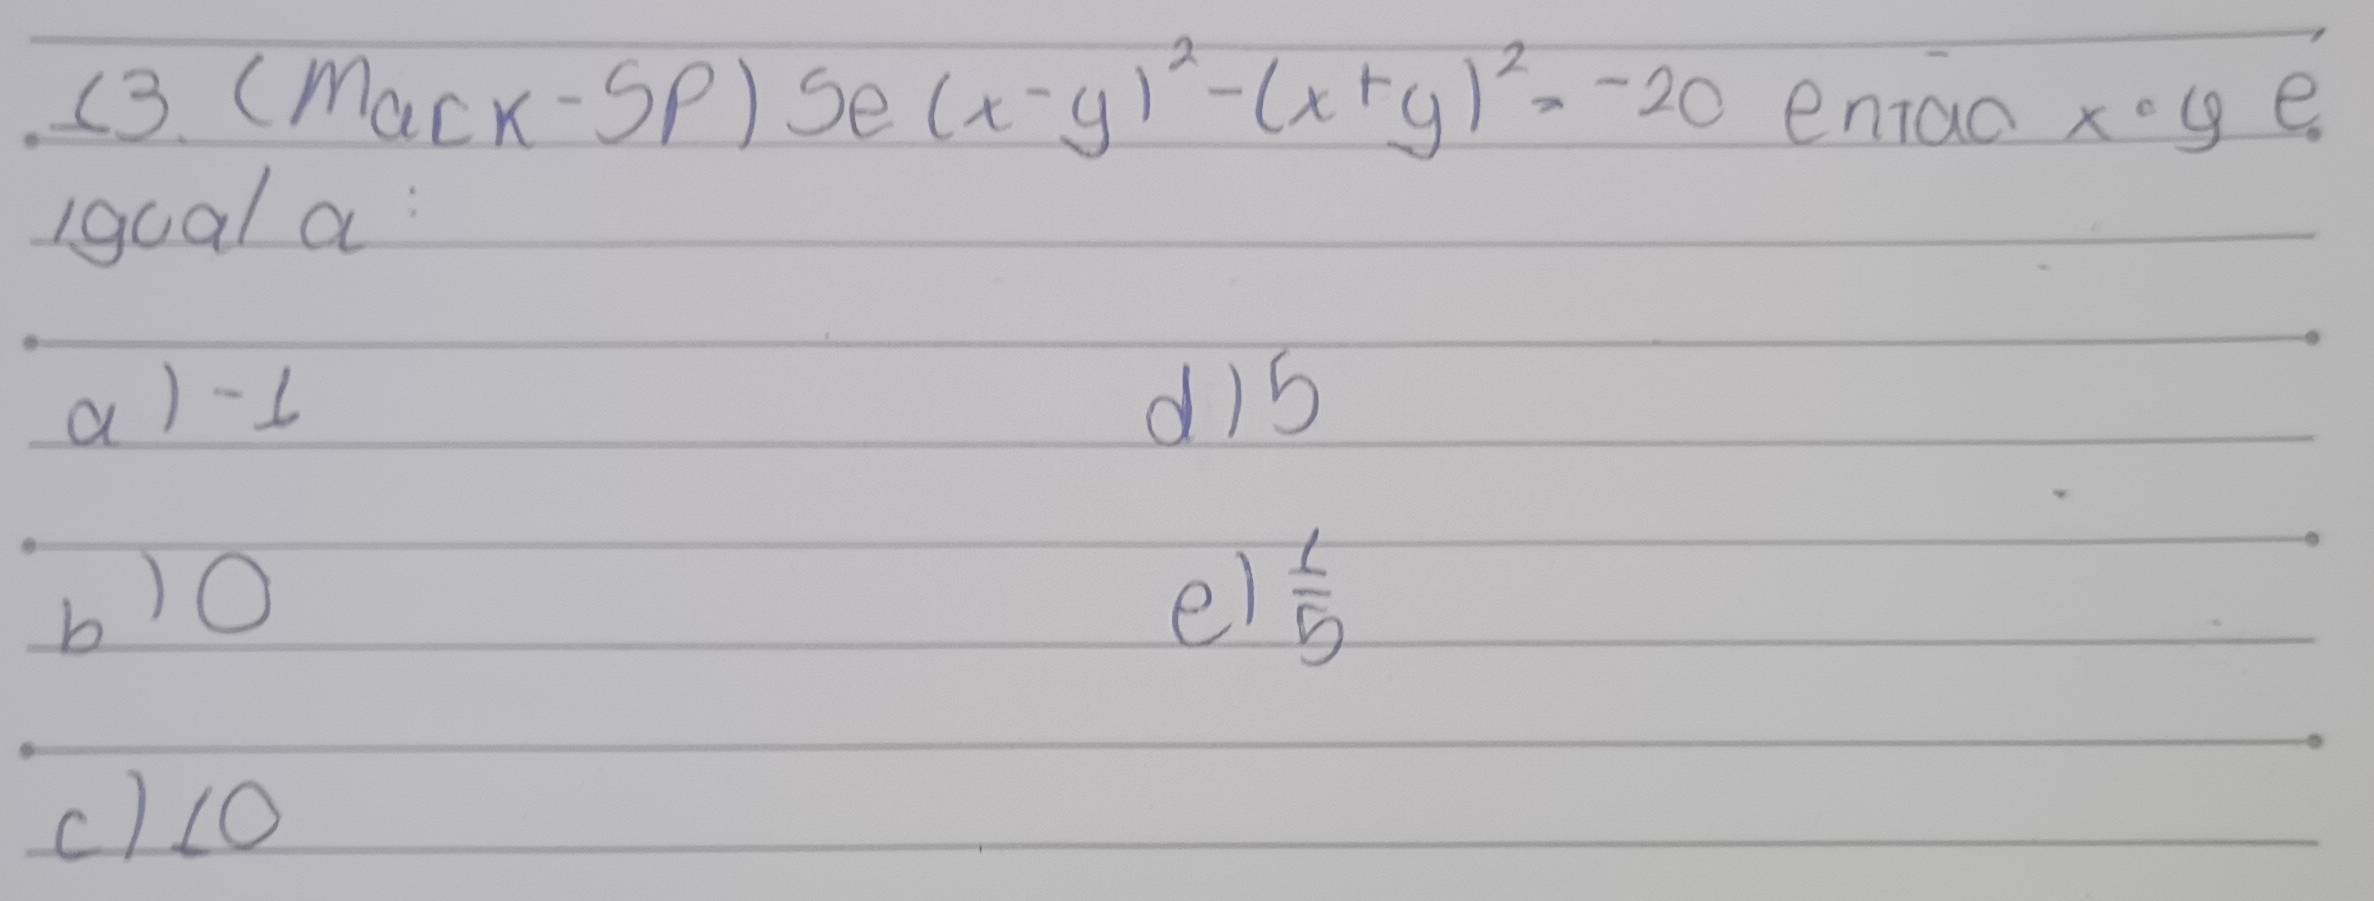 13. (Mack-SP) Se (x-y)² - (x+y)² = -20 então x·y é
igual a:
a) -1
d) 5
b) 0
e) 1/5
c) 10